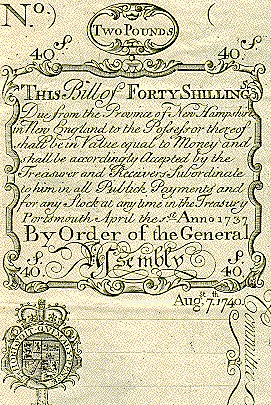 No. )
TWO POUNDS
40 s. 40 s.
THIS Bill of FORTY SHILLINGS
Due from the Province of New Hampshire
in New England to the Possessor thereof
shall be in Value equal to Money and
shall be accordingly Accepted by the
Treasurer and Receivers Subordinate
to him in all Publick Payments and
for any Stock at any time in the Treasury
Portsmouth April the 1st. Anno 1737
By Order of the General
40 s. Assembly 40 s.
Augst. 7th. 1740.
Committee